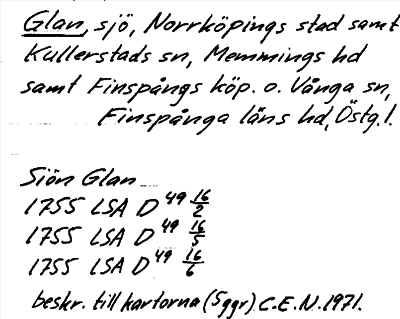 Glan, sjö, Norrköpings stad samt
Kullerstads sn, Memmings hd
samt Finspångs köp. o. Vånga sn,
Finspånga läns hd, Östg.l.
Sjön Glan
1755 LSA D 49 16/2
1755 LSA D 49 16/5
1755 LSA D 49 16/6
beskr. till kartorna (5 ggr) C.E.N. 1971.